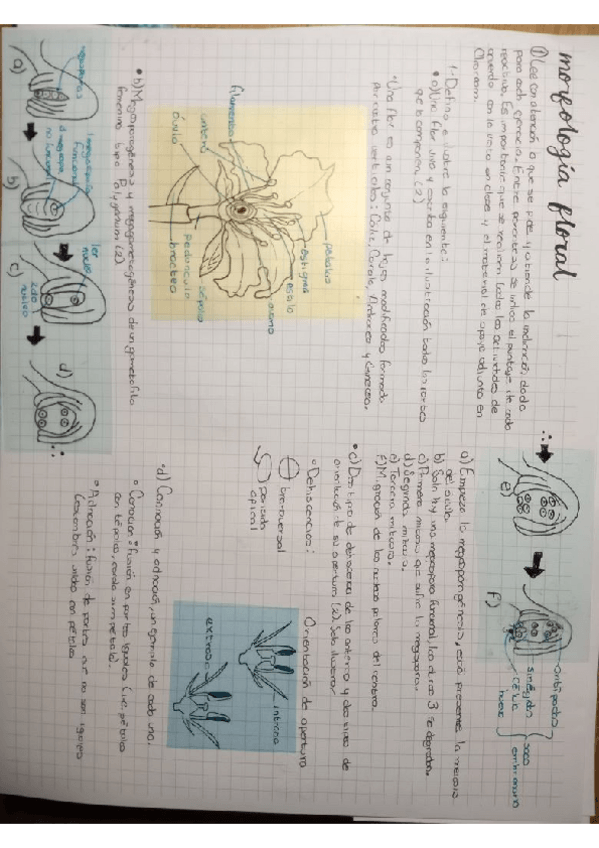 morfología floral
① Lee con atención lo que se pide y atiende la indicación dada
para cada ejercicio. Entre paréntesis se indica el puntaje de cada
reactivo. Es importante que se realicen todas las actividades de
acuerdo con lo visto en clases y el material de apoyo adjunto en
Classroom.
1.- Defina e ilustre lo siguiente:
• a) Una flor
que la componen. (2)
• Una flor es un conjunto de hojas modificadas formada
por cuatro verticilos: Cáliz, Corola, Androceo y Gineceo.
pétalos
estigma
estilo
filamentos
antera
óvulo
pedúnculo
sépalo
bráctea
• b) Megasporogénesis y megagametogénesis de un gametofito
femenino tipo Polygonum (2)
megasporas
a)
1 megaspora
funcional
3 megaspo.
no funcional
b)
1er
núcleo
2do
núcleo
c)
d)
e)
f)
antípodas
sinérgida
célula
huevo
saco
embrionario
a) Empieza la megasporogénesis, está presente la meiosis
del óvulo.
b) Solo hay una megaspora funcional, las otras 3 se degradan.
c) Primera mitosis que sufre la megaspora.
d) Segunda mitosis.
e) Tercera mitosis.
f) Migración de los núcleos polares del centro.
• c) Dos tipos de dehiscencia de las anteras y dos tipos de
orientación de su apertura (2). Solo ilustrar.
• Dehiscencias:
Orientación de apertura
transversal
poricida
apical
introrsa
extrorsa
• d) Connación y adnación, un ejemplo de cada una.
• Connación: fusión en partes iguales (i.e. pétalos
con sépalos, cardo simpétalo).
• Adnación: fusión de partes que no son iguales
(estambres unidos con pétalos.